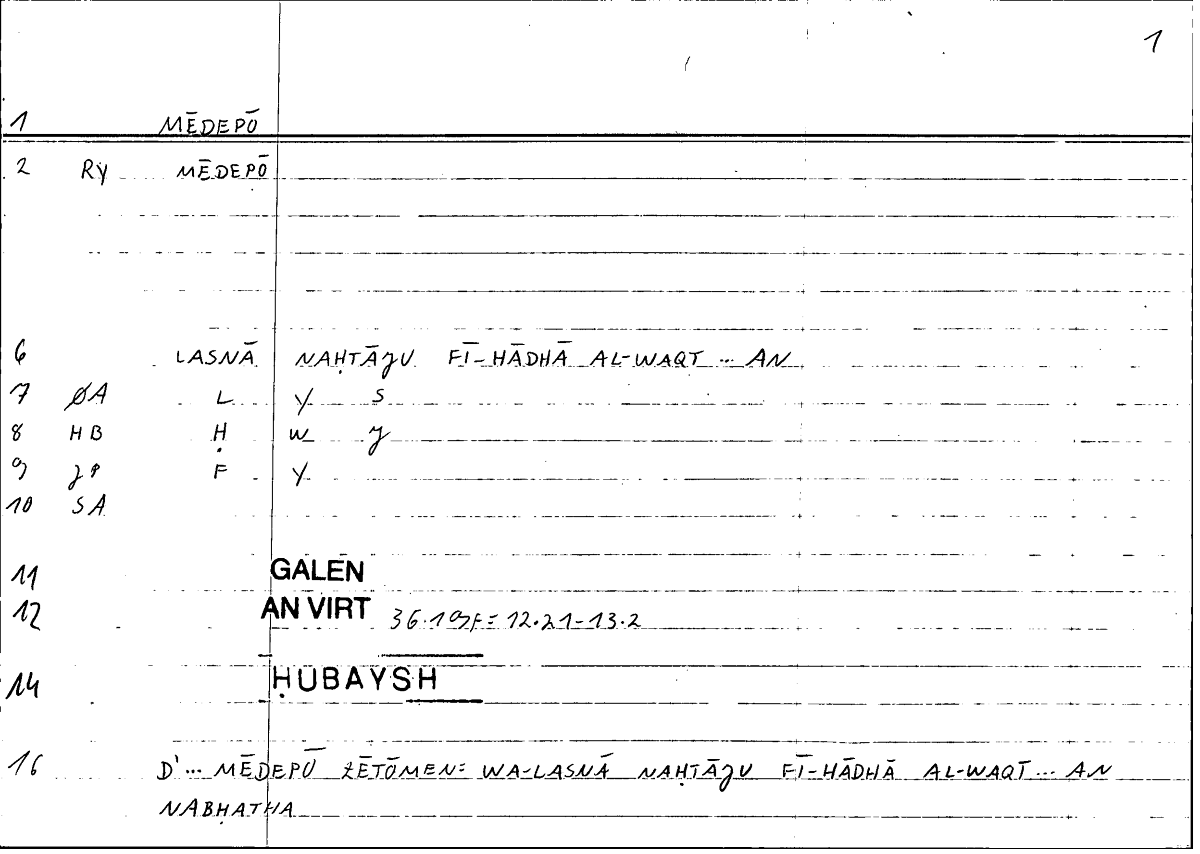 1
1 MĒDEPŌ
2 RY MĒDEPŌ
6 LASNĀ NAḤTĀJU FĪ-HĀDHĀ AL-WAQT ... AN
7 ØA L Y S
8 HB Ḥ W J
9 JP F Y
10 SA
11 GALEN
12 AN VIRT 36.19F= 12.21-13.2
14 ḤUBAYSH
16 D'... MĒDEPŌ ZĒTŌMEN: WA-LASNĀ NAḤTĀJU FĪ-HĀDHĀ AL-WAQT ... AN
NABḤATHA